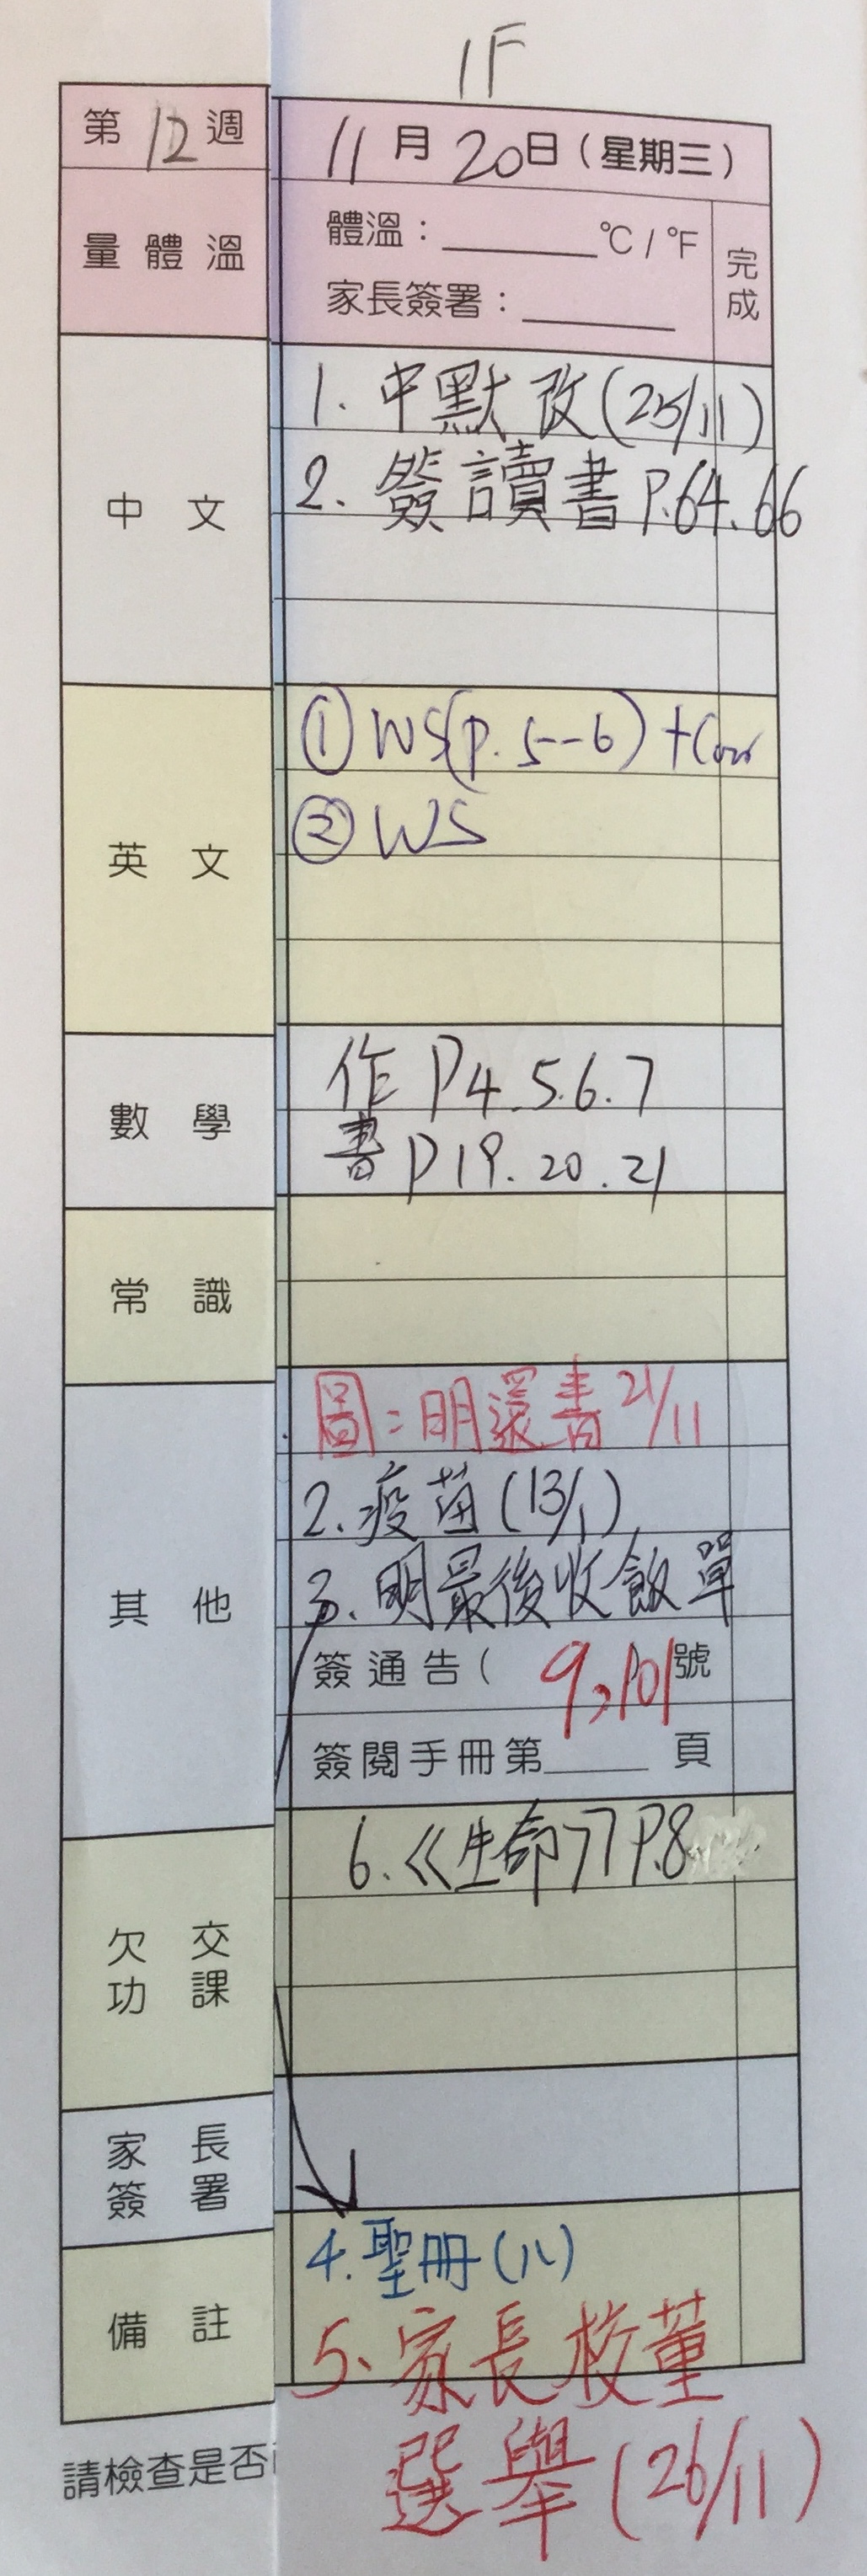 1F
第12週
11月20日(星期三)
量體溫
體溫：______°C/°F
家長簽署：______
完成
中文
1. 中默改(25/11)
2. 簽讀書P.64.66
英文
① WS(P.5--6)+Corr
② WS
數學
作P4.5.6.7
書P19.20.21
常識
其他
圖:明還書21/11
2.疫苗(13/1)
3.明最後收飯單
簽通告( 9,101號
簽閱手冊第______頁
欠交功課
6.《生命》P.8
家長簽署
備註
4.聖冊(八)
5、家長校董
選舉(26/11)
請檢查是否